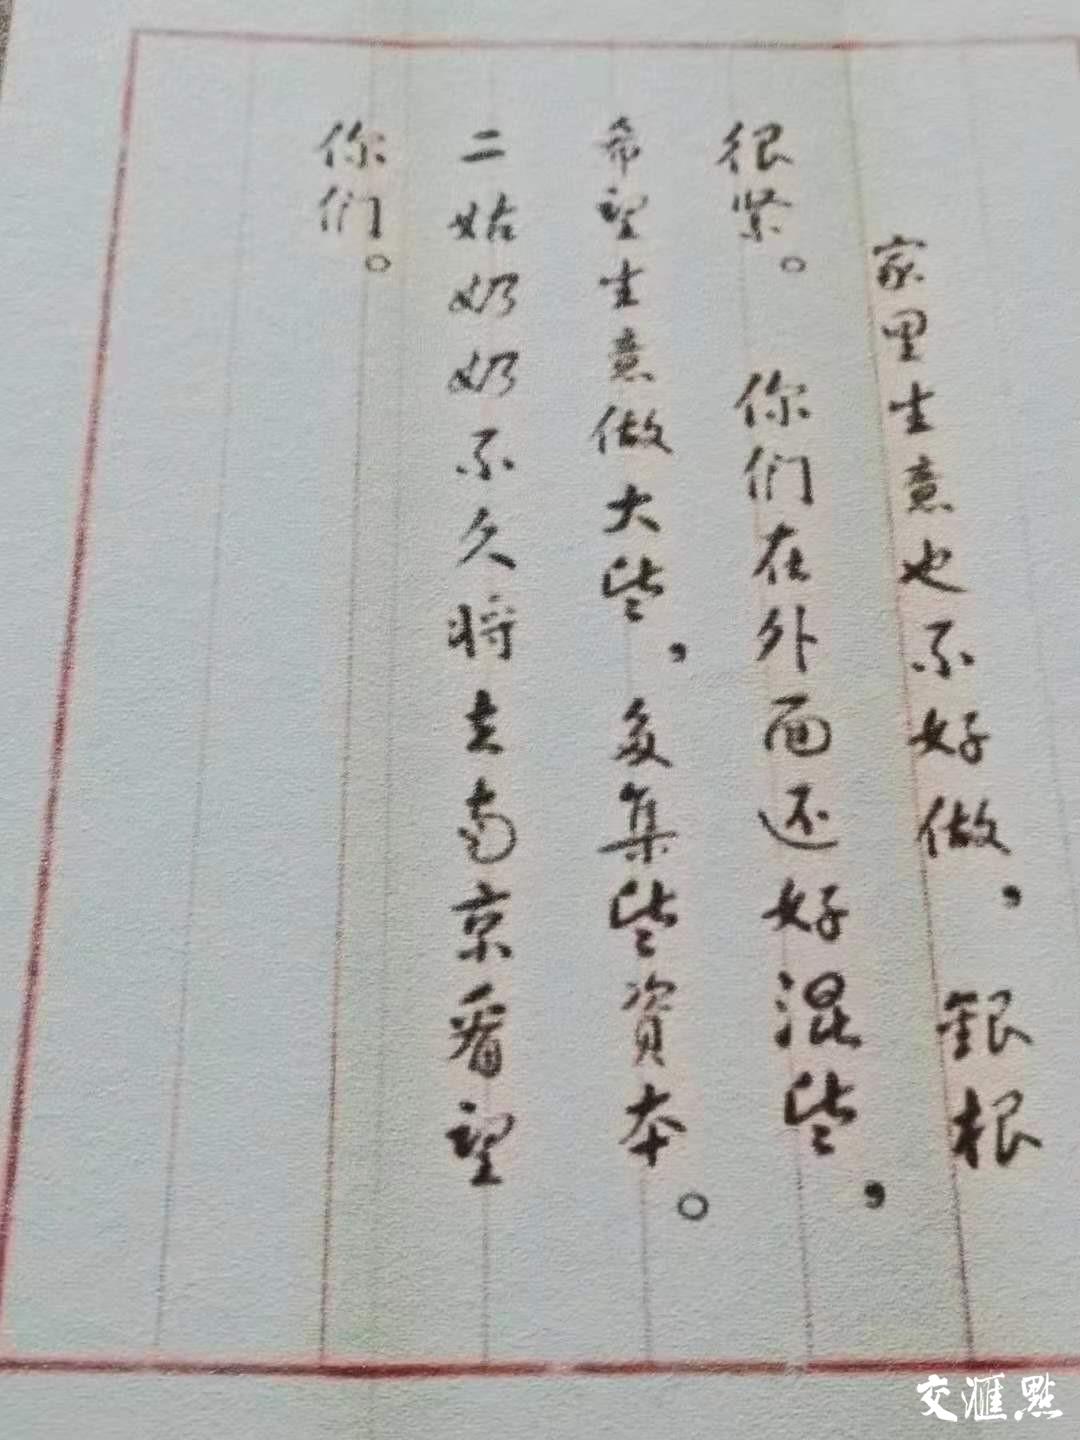 家里生意也不好做，銀根
很紧。你们在外面还好混些，
希望生意做大些，多集些資本。
二姑奶奶不久将去南京看望
你们。
交滙點